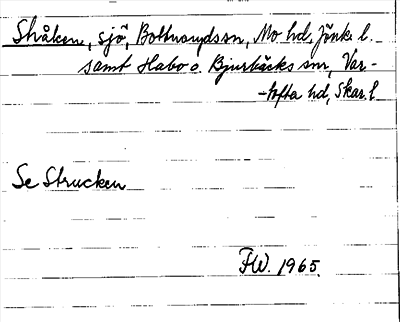 Stråken, sjö, Bottnaryds sn, Mo hd, Jönk. l.
samt Habo o Bjurbäcks snr, Var-
-tofta hd, Skar. l
Se Strucken
FW. 1965.